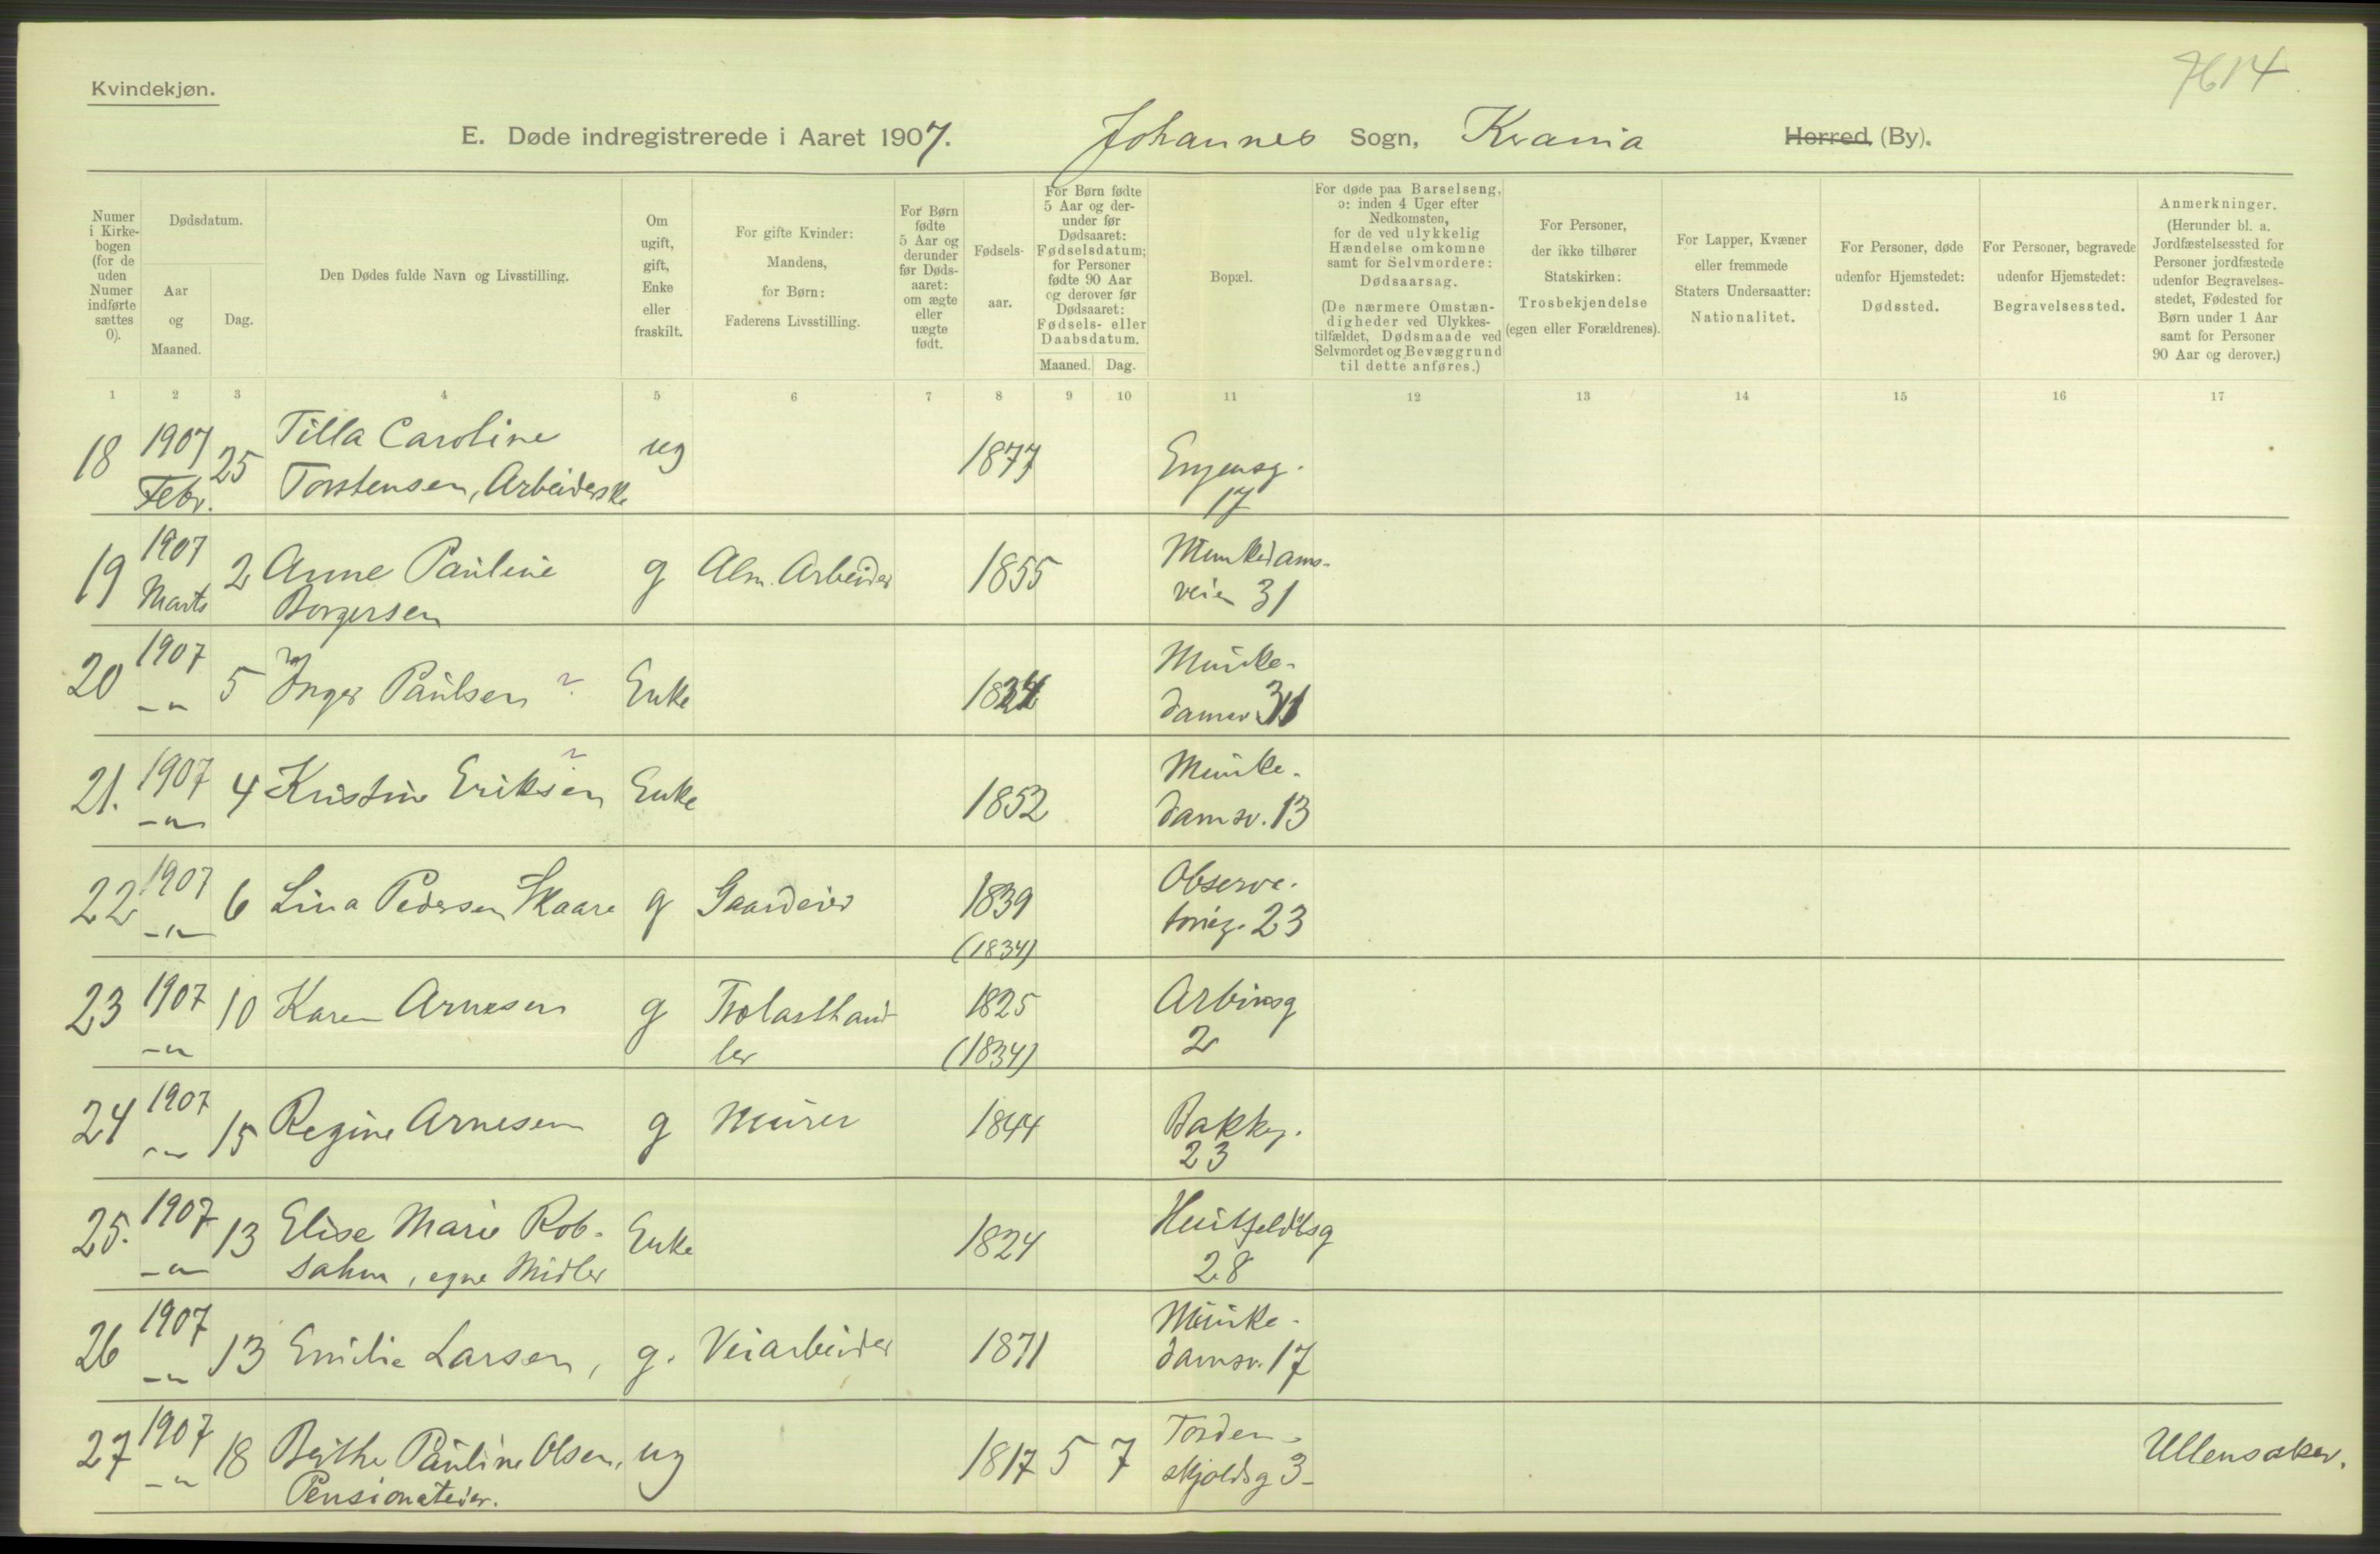 7614
Kvindekjøn.
E. Døde indregistrerede i Aaret 1907. Johannes Sogn, Krania Herred (By).
Numer i Kirke-bogen (for de uden Numer indførte sættes 0).
Dødsdatum.
Aar og Maaned.
Dag.
Den Dødes fulde Navn og Livsstilling.
Om ugift, gift, Enke eller fraskilt.
For gifte Kvinder: Mandens, for Børn: Faderens Livsstilling.
For Børn fødte 5 Aar og derunder før Døds-aaret: om ægte eller uægte født.
Fødsels-aar.
For Børn fødte 5 Aar og der-under før Dødsaaret: Fødselsdatum; for Personer fødte 90 Aar og derover før Dødsaaret: Fødsels- eller Daabsdatum.
Maaned. Dag.
Bopæl.
For døde paa Barselseng, ɔ: inden 4 Uger efter Nedkomsten, for de ved ulykkelig Hændelse omkomne samt for Selvmordere: Dødsaarsag.
(De nærmere Omstæn-digheder ved Ulykkes-tilfældet, Dødsmaade ved Selvmordet og Bevæggrund til dette anføres.)
For Personer, der ikke tilhører Statskirken: Trosbekjendelse (egen eller Forældrenes).
For Lapper, Kvæner eller fremmede Staters Undersaatter: Nationalitet.
For Personer, døde udenfor Hjemstedet: Dødssted.
For Personer, begravede udenfor Hjemstedet: Begravelsessted.
Anmerkninger.
(Herunder bl. a. Jordfæstelsessted for Personer jordfæstede udenfor Begravelses-stedet, Fødested for Børn under 1 Aar samt for Personer 90 Aar og derover.)
1 2 3 4 5 6 7 8 9 10 11 12 13 14 15 16 17
18 1907 Febr. 25 Tilla Caroline
Torstensen, Arbeiderske ug 1877
17
19 1907 Marts 2 Anne Pauline
Borgersen g Alm. Arbeider 1855 Munkedams-
veien 31
20 1907 -"- 5 Inger Paulsen ? Enke Munke-
damsv 31
21. 1907 -"- 4 Kristine Eriksen ? Enke 1852 Munke-
damsv. 13
22 1907 -"- 6 Lina Pedersen Skaare g Gaardeier 1839 Observa-
torieg. 23
(1834)
23 1907 -"- 10 Karen Arnesen g Trælasthand-
ler 1825 Arbinsg
(1834) 2
24 1907 -"- 15 Regine Arnesen g Murer 1844 Bakkeg.
23
25. 1907 -"- 13 Elise Marie Rob-
sahm, egne Midler Enke 1824 Huitfeldtsg
28
26 1907 -"- 13 Emilie Larsen, g. Veiarbeider 1871 Munke-
damsv. 17
27 1907 -"- 18 Berthe Pauline Olsen, ug 1817 5 7 Torden-
Pensionateier. skjoldsg 3 Ullensaker.